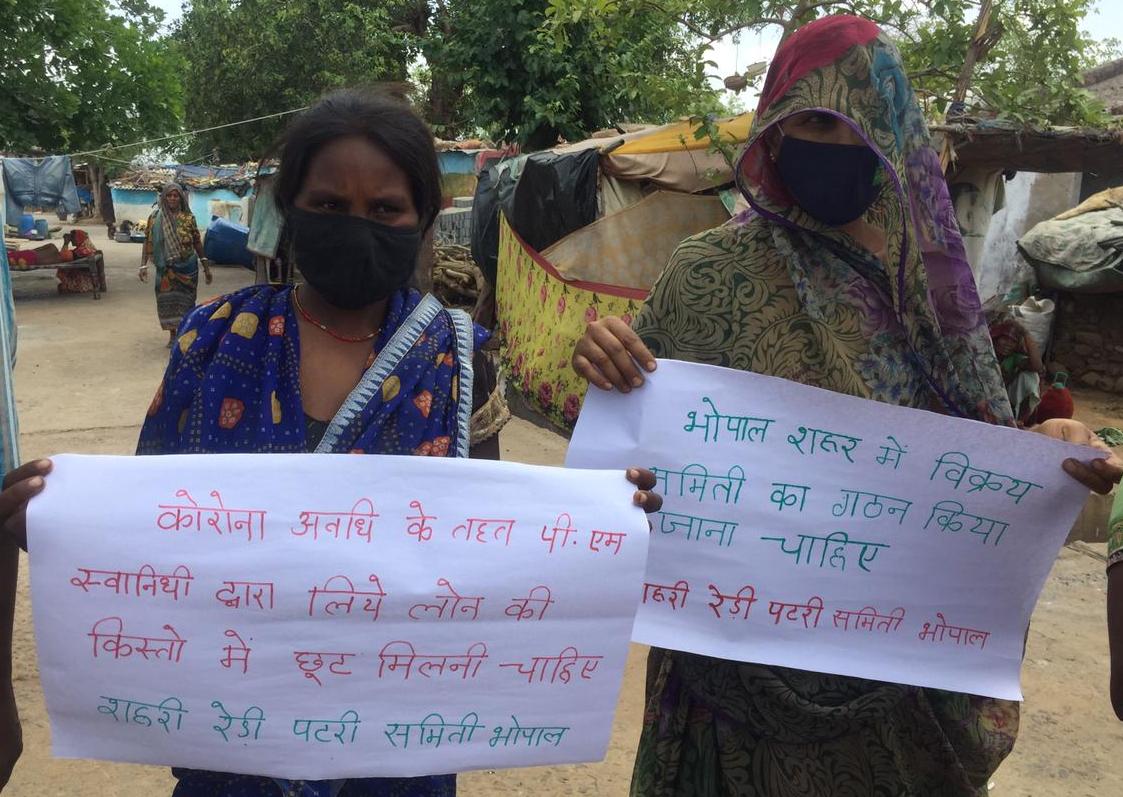 कोरोना अवधि के तहत पी.एम
स्वानिधी द्वारा लिये लोन की
किस्तो में छूट मिलनी चाहिए
शहरी रेड़ी पटरी समिती भोपाल
भोपाल शहर में विक्रय
समिती का गठन किया
जाना चाहिए
शहरी रेड़ी पटरी समिती भोपाल